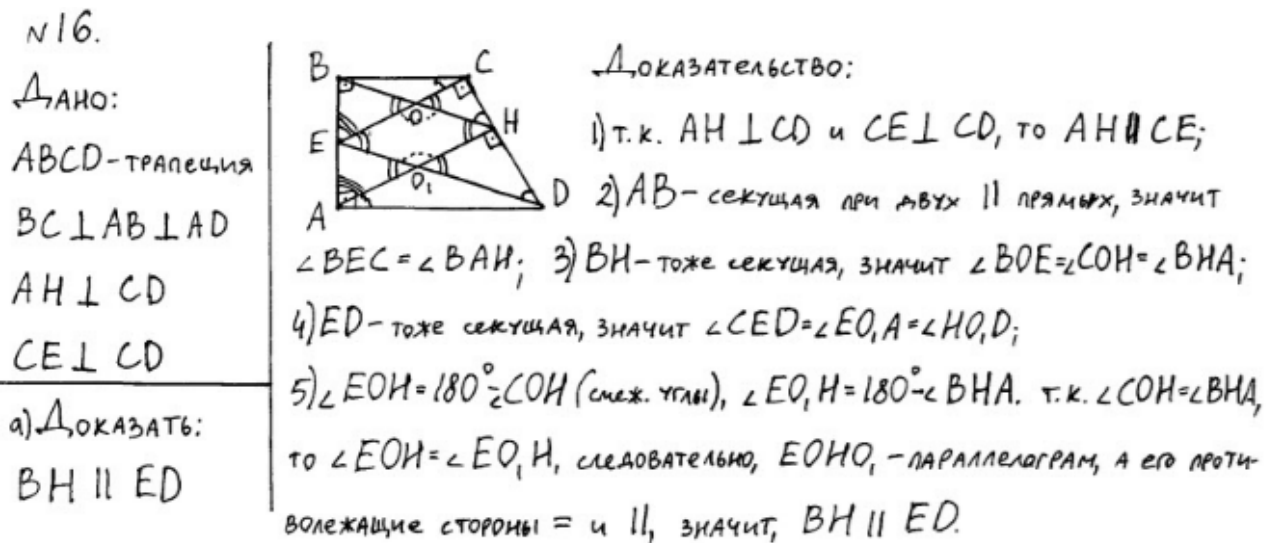 N16.
Дано:
ABCD-трапеция
BC⊥AB⊥AD
AH⊥CD
CE⊥CD
а) Доказать:
BH || ED
B C
E O H
O₁
A D
Доказательство:
1) т.к. AH⊥CD и CE⊥CD, то AH || CE;
2) AB- секущая при двух || прямых, значит
∠BEC=∠BAH; 3) BH-тоже секущая, значит ∠BOE=∠COH=∠BHA;
4) ED-тоже секущая, значит ∠CED=∠EO₁A=∠HO₁D;
5) ∠EOH=180°-∠COH (смеж. углы), ∠EO₁H=180°-∠BHA. т.к. ∠COH=∠BHA,
то ∠EOH=∠EO₁H, следовательно, EOHO₁-параллелограм, а его проти-
волежащие стороны = и ||, значит, BH || ED.